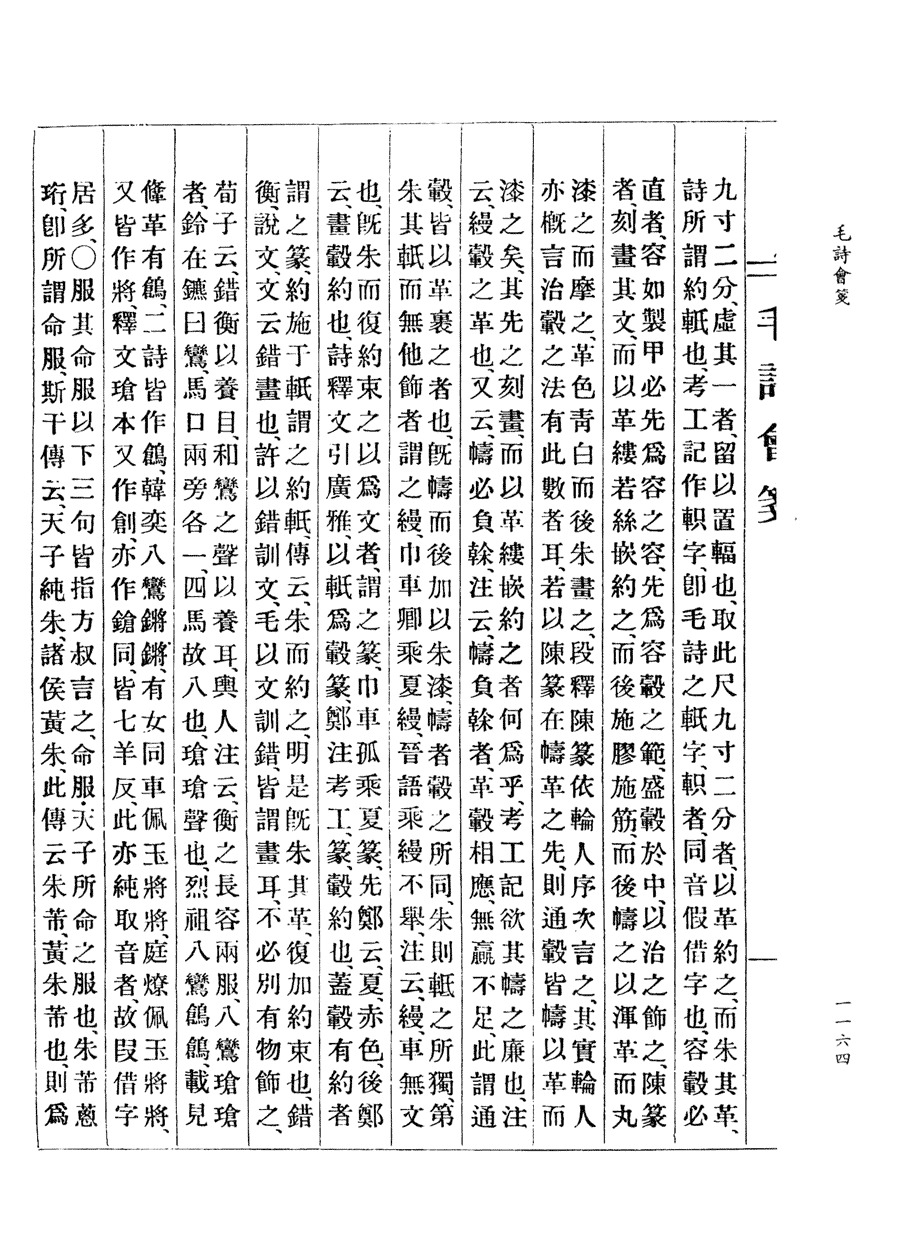 毛詩會箋
一一六四
毛詩會箋
九寸二分、虛其一者、留以置輻也、取此尺九寸二分者、以革約之、而朱其革、
詩所謂約軝也、考工記作軹字、卽毛詩之軝字、軹者、同音假借字也、容轂必
直者、容如製甲必先爲容之容、先爲容轂之範、盛轂於中、以治之飾之、陳篆
者、刻畫其文、而以革縷若絲嵌約之、而後施膠施筋、而後幬之以渾革而丸
漆之而摩之、革色靑白而後朱畫之、段釋陳篆依輪人序次言之、其實輪人
亦槪言治轂之法有此數者耳、若以陳篆在幬革之先、則通轂皆幬以革而
漆之矣、其先之刻畫、而以革縷嵌約之者何爲乎、考工記欲其幬之廉也、注
云、縵轂之革也、又云、幬必負榦、注云、幬負榦者、革轂相應、無贏不足、此謂通
轂、皆以革裹之者也、旣幬而後加以朱漆、幬者轂之所同、朱則軝之所獨、第
朱其軝而無他飾者謂之縵、巾車卿乘夏縵、晉語乘縵不舉、注云、縵、車無文
也、旣朱而復約束之以爲文者、謂之篆、巾車孤乘夏篆、先鄭云、夏、赤色、後鄭
云、畫轂約也、詩釋文引廣雅、以軝爲轂篆、鄭注考工、篆、轂約也、蓋轂有約者
謂之篆、約施于軝謂之約軝、傳云、朱而約之、明是旣朱其革、復加約束也、錯
衡、說文、文云錯畫也、許以錯訓文、毛以文訓錯、皆謂畫耳、不必別有物飾之、
荀子云、錯衡以養目、和鸞之聲以養耳、輿人注云、衡之長容兩服、八鸞瑲瑲
者、鈴在鑣曰鸞、馬口兩旁各一、四馬故八也、瑲瑲聲也、烈祖八鸞鶬鶬、載見
鞗革有鶬、二詩皆作鶬、韓奕八鸞鏘鏘、有女同車佩玉將將、庭燎佩玉將將、
又皆作將、釋文瑲本又作創、亦作鎗同、皆七羊反、此亦純取音者、故叚借字
居多、○服其命服以下三句皆指方叔言之、命服、天子所命之服也、朱芾蔥
珩、卽所謂命服、斯干傳云、天子純朱、諸侯黃朱、此傳云朱芾、黃朱芾也、則爲